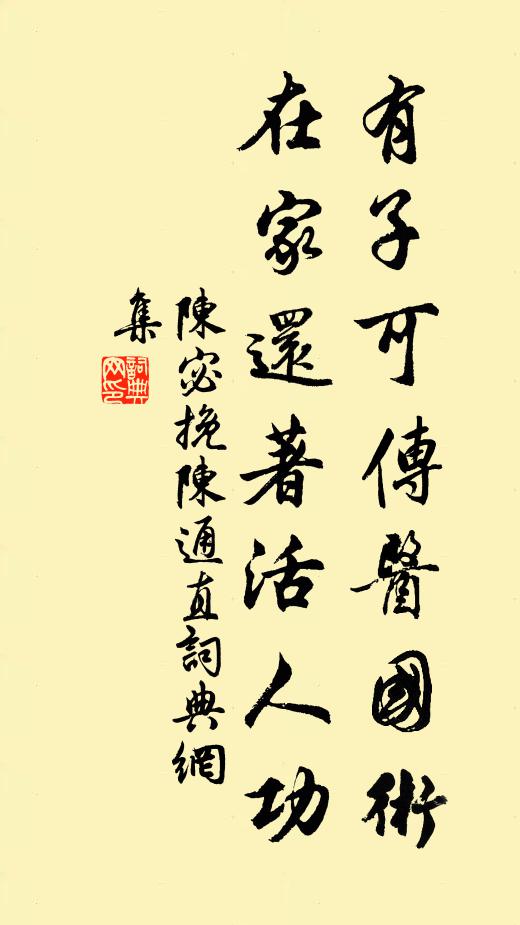 有子可傳醫國術
在家還著活人功
陳宓挽陳通直詞典網
集
詞典
网印